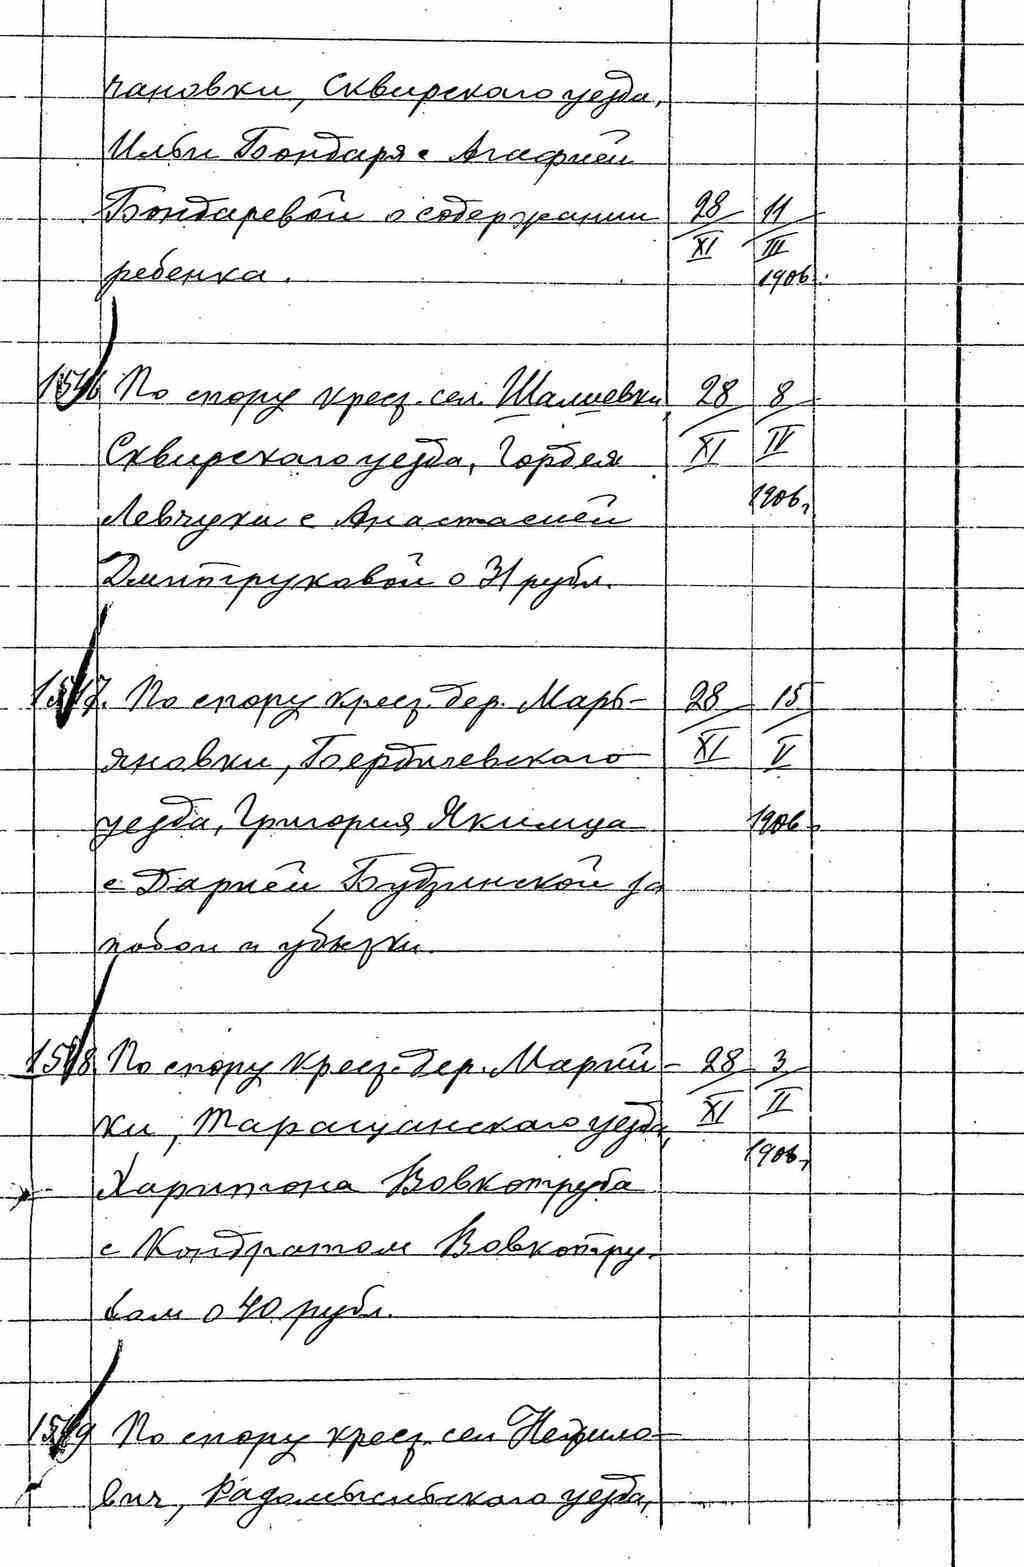 чановки, Сквирского уезда,
Ильи Бондаря с Агафией
Бондаревой о содержании 28 11
XI III
ребенка. 1906.
1546 По спору крест. сел. Шалиевки, 28 8
Сквирского уезда, Гордея XI IV
1906г,
Левчука с Анастасией
Дмитруковой о 31 рубл.
1547. По спору крест. дер. Марь- 28 15
яновки, Бердичевского XI V
уезда, Григория Якимца 1906
с Дарией Будзинской за
побои и убытки.
1548 По спору крест. дер. Марий- 28 3
ки, Таращанского уезда, XI II
1906г,
Харитона Вовкотруба
с Кондратом Вовкотру-
бом о 40 рубл.
1549 По спору крест. сел Нежило-
вич, Радомысльского уезда,